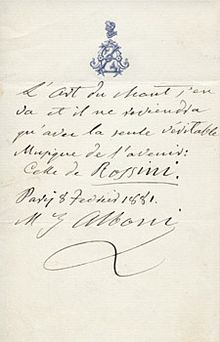 L'Art du Chant s'en
va et il ne reviendra
qu'avec la seule véritable
Musique de l'avenir:
Celle de Rossini.
Paris 8 Fevrier 1881.
M Alboni